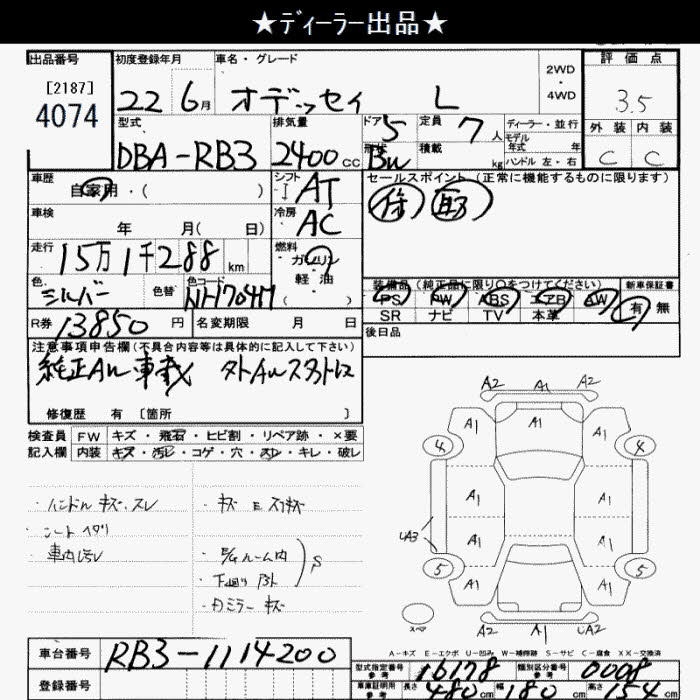 ★ディーラー出品★
出品番号 初度登録年月 車名・グレード 評価点
[2187]
4074
22 6月 オデッセイ L 2WD・4WD 3.5
型式 排気量 ドア 5 定員 7人 ディーラー・並行 外装 内装
DBA-RB3 2400cc 形状 Bw 積載 kg モデル年式 年 ハンドル 左・右 C C
車歴 自家用・( ) シフト AT セールスポイント (正常に機能するものに限ります)
車検 年 月( 日) 冷房 AC 保 取
走行 15万1千288km 燃料 ガソリン・軽油 ( )
色 シルバー 色替 色コード NH704M 装備品 (純正品に限り○をつけてください) 新車保証書
PS PW ABS エアB AW 有 無
R券 13850円 名変期限 月 日 SR ナビ TV 本革
後日品
注意事項申告欄 (不具合内容等は具体的に記入して下さい)
純正AW 車載
修復歴 有 〔箇所 〕
検査員 FW キズ・飛石・ヒビ割・リペア跡・×要
記入欄 内装 キズ・汚レ・コゲ・穴・スレ・キレ・破レ
・ハンドル キズ、スレ
・シート ヘタリ
・車内汚レ
・E/Gルーム内
・下回り S
A2 A1 A2
A1 A1 A1
4 4
A1 A1
UA3 A1 A1
5 5
A1 A1
スペア
A2 A1 UA2
A-キズ E-エクボ U-凹み W-補修跡 S-サビ C-腐食 XX-交換済
車台番号 RB3-1114200
型式指定番号 参考 16178 類別区分番号 参考 0008
登録番号
車庫証明用 参考 長さ 480cm 幅 180cm 高さ 154cm